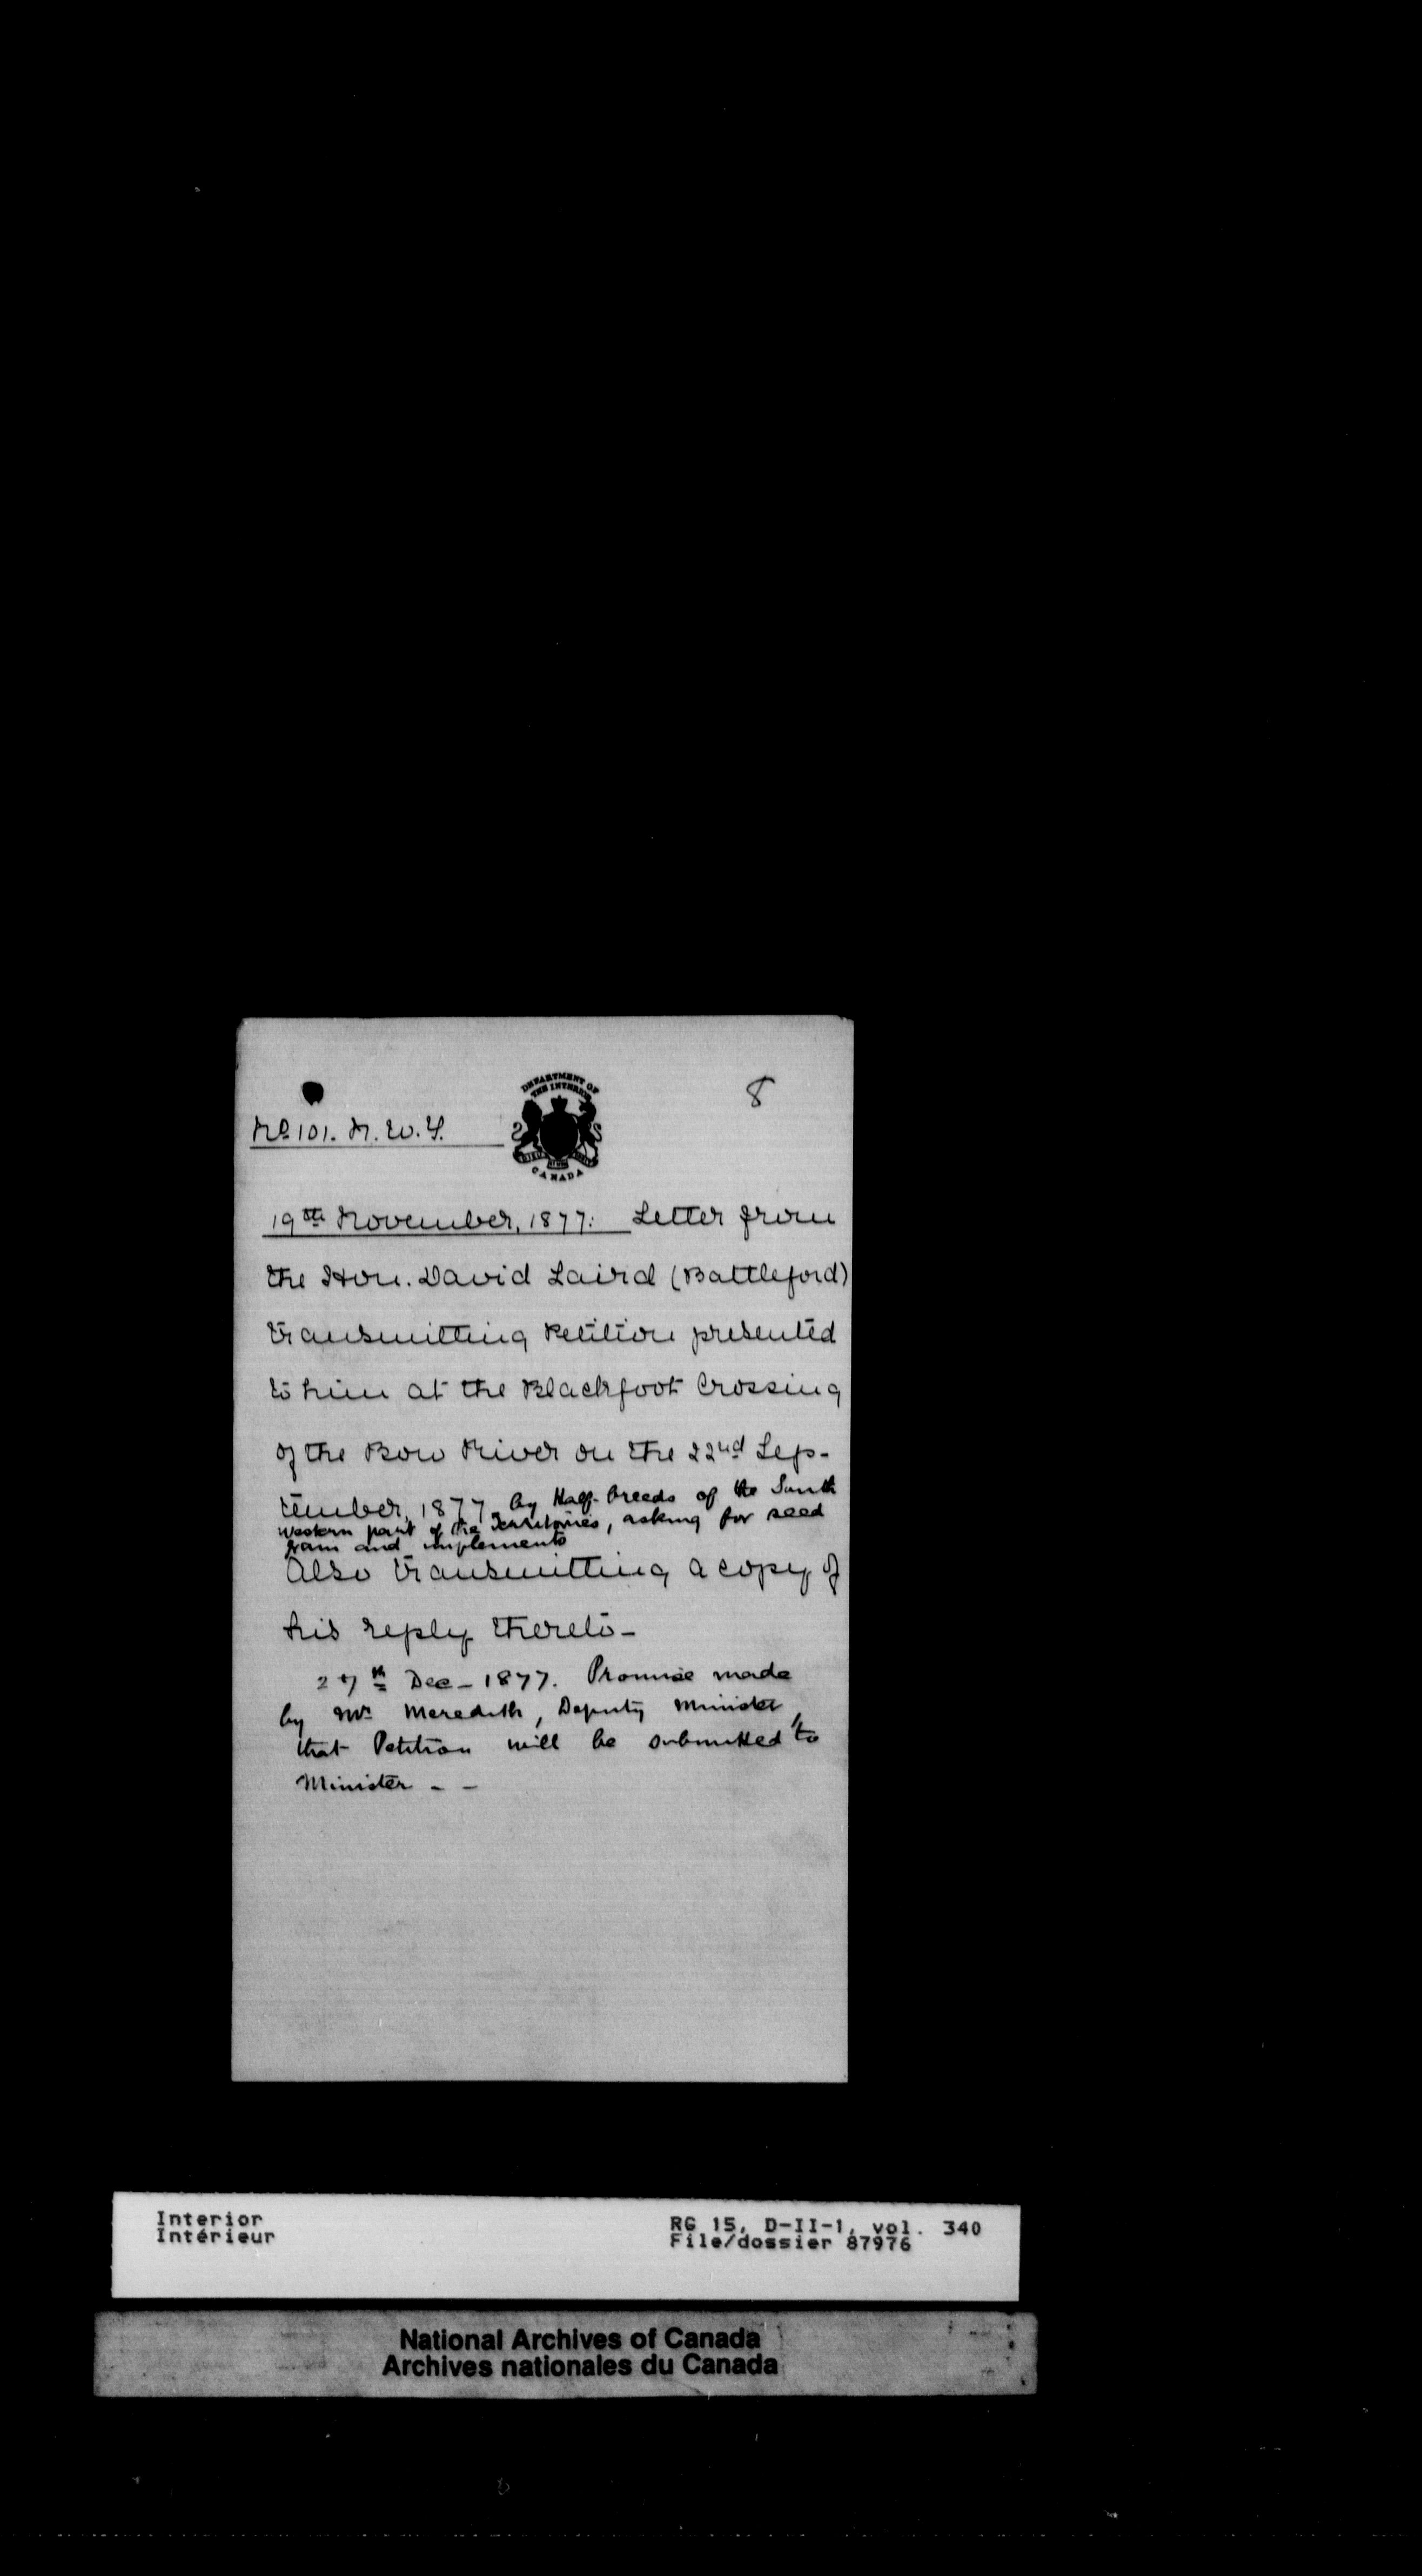 8
No 101. N. W. T.
DEPARTMENT OF
THE INTERIOR
CANADA
19th November, 1877: Letter from
the Hon. David Laird (Battleford)
transmitting Petition presented
to him at the Blackfoot Crossing
of the Bow River on the 22nd Sep-
tember, 1877, by Half-breeds of the South
western part of the Territories, asking for seed
grain and implements
Also transmitting a copy of
his reply thereto -
27th Dec - 1877. Promise made
by Mr Meredith, Deputy Minister,
that Petition will be submitted to
Minister - -
Interior
Intérieur
RG 15, D-II-1, vol. 340
File/dossier 87976
National Archives of Canada
Archives nationales du Canada